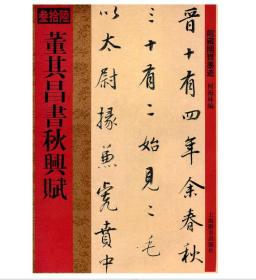 叁拾陸
董其昌書秋興賦
晉十有四年余春秋
三十有二始見二毛
以太尉掾兼虎賁中